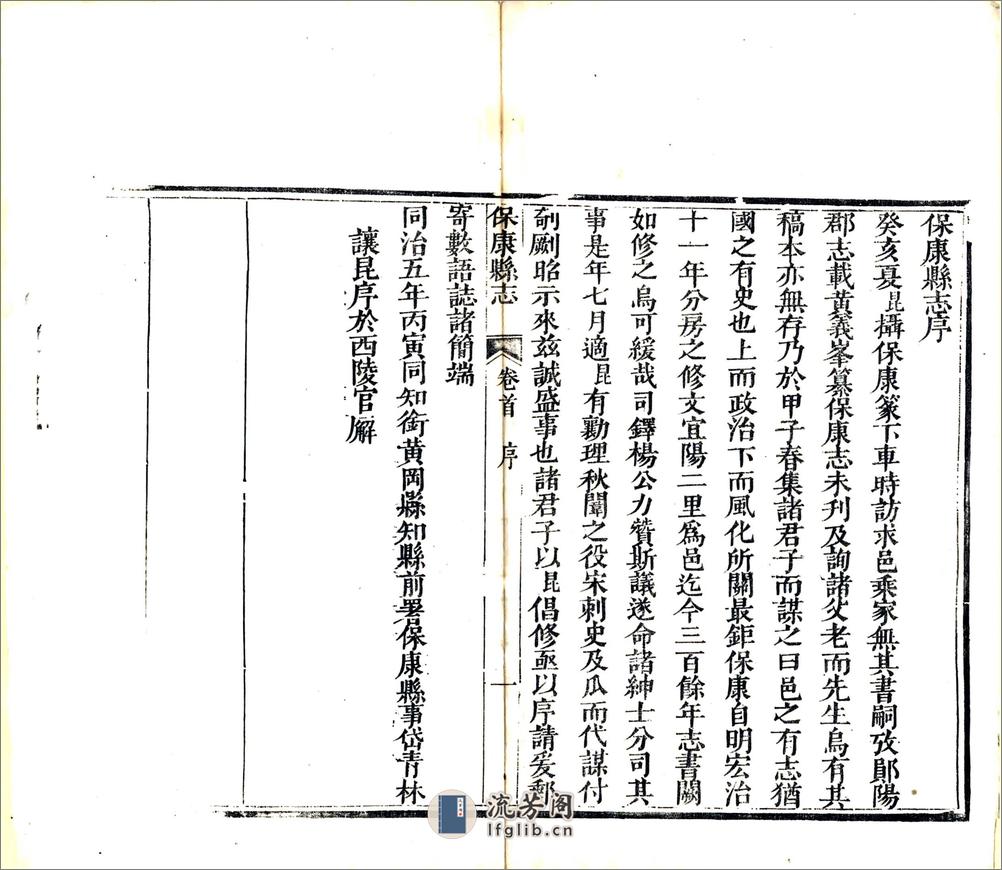 保康縣志序
癸亥夏昆攝保康篆下車時訪求邑乘家無其書嗣攷鄖陽
郡志載黃義峯纂保康志未刋及詢諸父老而先生烏有其
稿本亦無存乃於甲子春集諸君子而謀之曰邑之有志猶
國之有史也上而政治下而風化所關最鉅保康自明宏治
十一年分房之修文宜陽二里爲邑迄今三百餘年志書闕
如修之烏可緩哉司鐸楊公力贊斯議遂命諸紳士分司其
事是年七月適昆有勷理秋闈之役宋刺史及瓜而代謀付
剞劂昭示來兹誠盛事也諸君子以昆倡修亟以序請爰郵
保康縣志 卷首 序 一
寄數語誌諸簡端
同治五年丙寅同知銜黃岡縣知縣前署保康縣事岱青林
讓昆序於西陵官廨
流芳阁
lfglib.cn